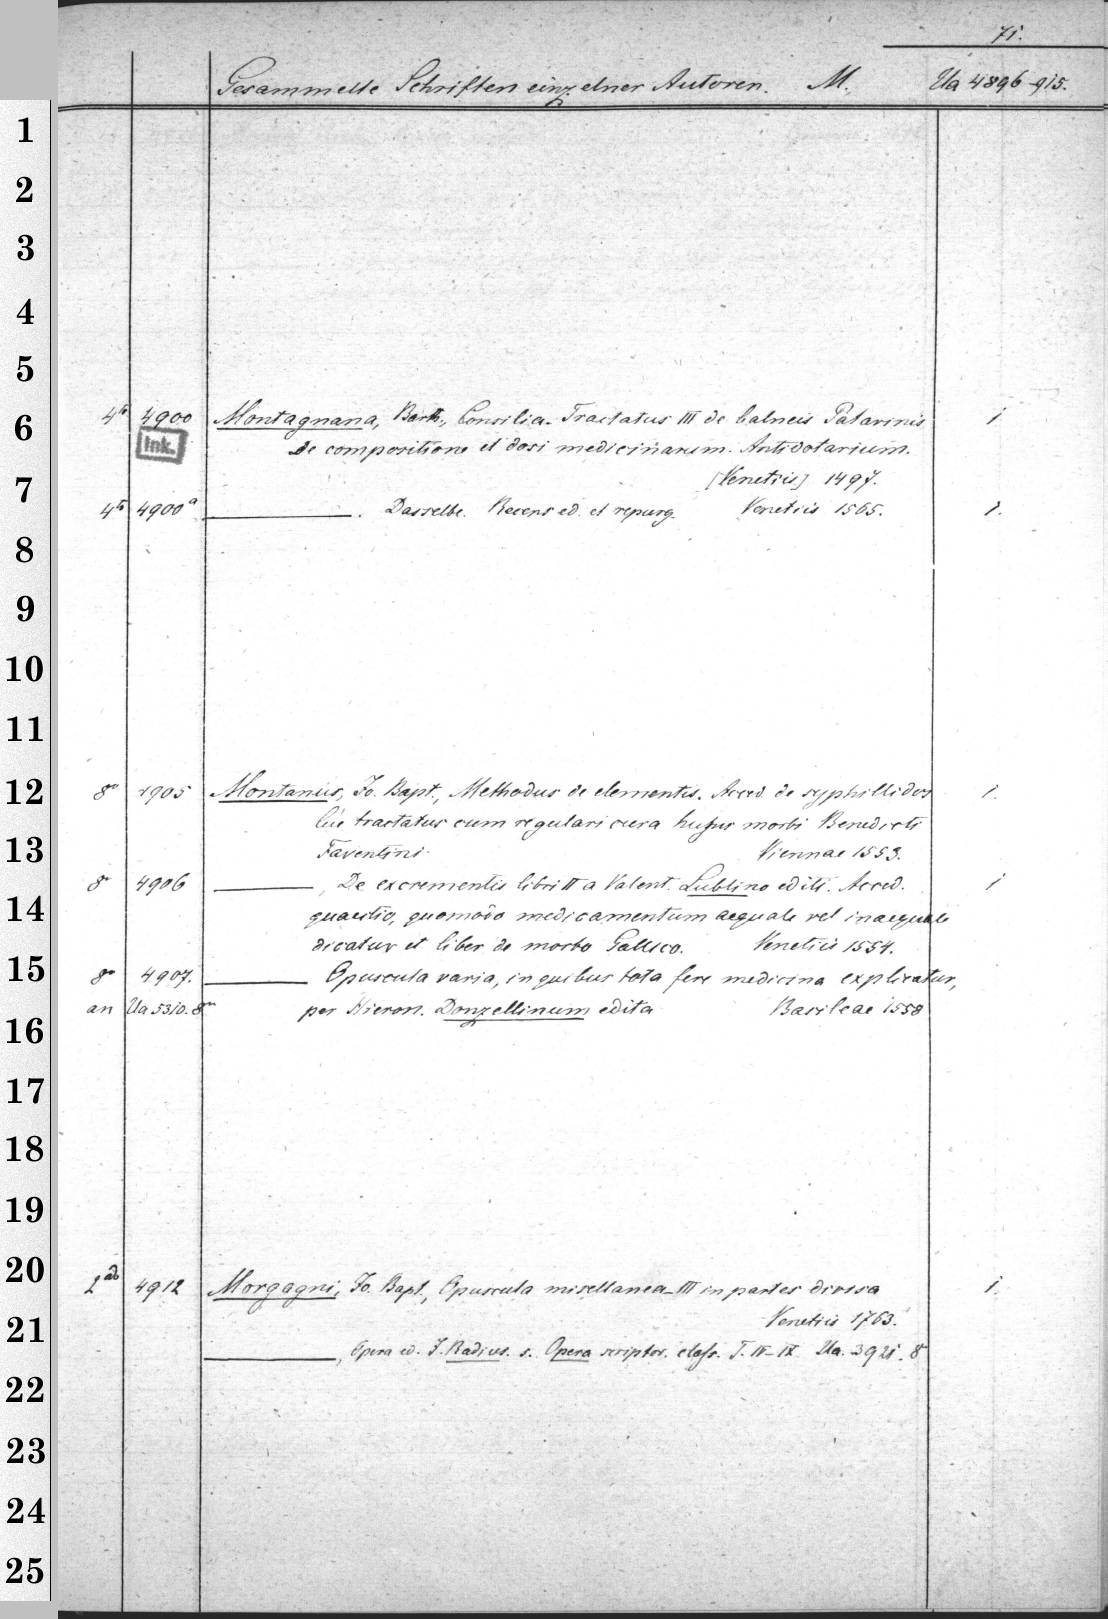 71.
Gesammelte Schriften einzelner Autoren. M. Ua 4896-915.
1
2
3
4
5
6
4to 4900 Montagnana, Barth., Consilia. Tractatus III de balneis Patavinis 1
Ink. de compositione et dosi medicinarum. Antidotarium.
7
[Venetiis] 1497.
4to 4900a . Dasselbe. Recens ed. et repurg. Venetiis 1565. 1.
8
9
10
11
12
8o 4905 Montanus, Jo. Bapt., Methodus de elementis. Acced. de syphillidos 1.
lue tractatus cum regulari cura hujus morbi Benedicti
13
Faventini. Viennae 1553.
8o 4906 , De excrementis libri II a Valent. Lublino editi. Acced. 1
14
quaestio, quomodo medicamentum aequale vel inaequale
dicatur et liber de morbo Gallico. Venetiis 1554.
15
8o 4907. Opuscula varia, in quibus tota fere medicina explicatur,
an Ua 5310. 8o per Hieron. Donzellinum edita Basileae 1558
16
17
18
19
20
2o 4912 Morgagni, Jo. Bapt., Opuscula miscellanea III in partes divisa 1.
Venetiis 1763.
21
, Opera ed. J. Radius. s. Opera scriptor. class. T. IV-IX Ua. 3921. 8
22
23
24
25